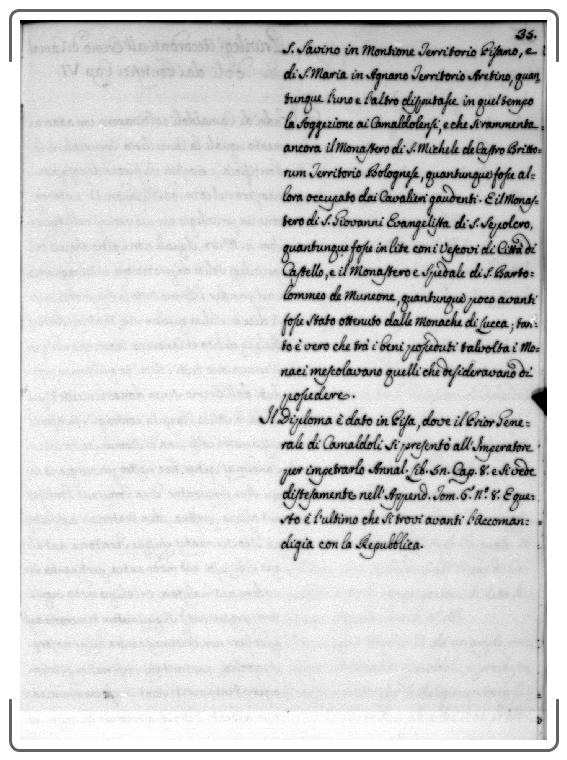 35.
S. Savino in Montione Territorio Pisano, e
di S. Maria in Agnano Territorio Aretino, quan
tunque l'uno e l'altro disputasse in quel tempo
la soggezione ai Camaldolensi, e che si rammenta
ancora il Monastero di S. Michele de Castro Britto=
rum Territorio Bolognese, quantunque fosse al=
lora occupato dai Cavalieri gaudenti. E il Monas=
tero di S. Giovanni Evangelista di S. Sepolcro,
quantunque fosse in lite con i Vescovi di Città di
Castello, e il Monastero e Spedale di S. Barto=
lommeo de Muneone, quantunque poco avanti
fosse stato ottenuto dalle Monache di Lucca; tan=
to è vero che trà i beni posseduti talvolta i Mo=
naci mescolavano quelli che desideravano di
possedere.
Il Diploma è dato in Pisa, dove il Prior Gene=
rale di Camaldoli si presentò all'Imperatore
per impetrarlo Annal. Lib. 5n. Cap. 8. e si vede
distesamente nell'Append. Tom. 6.º N.º 8. E que=
sto è l'ultimo che si trovi avanti l'Accoman=
digia con la Repubblica.